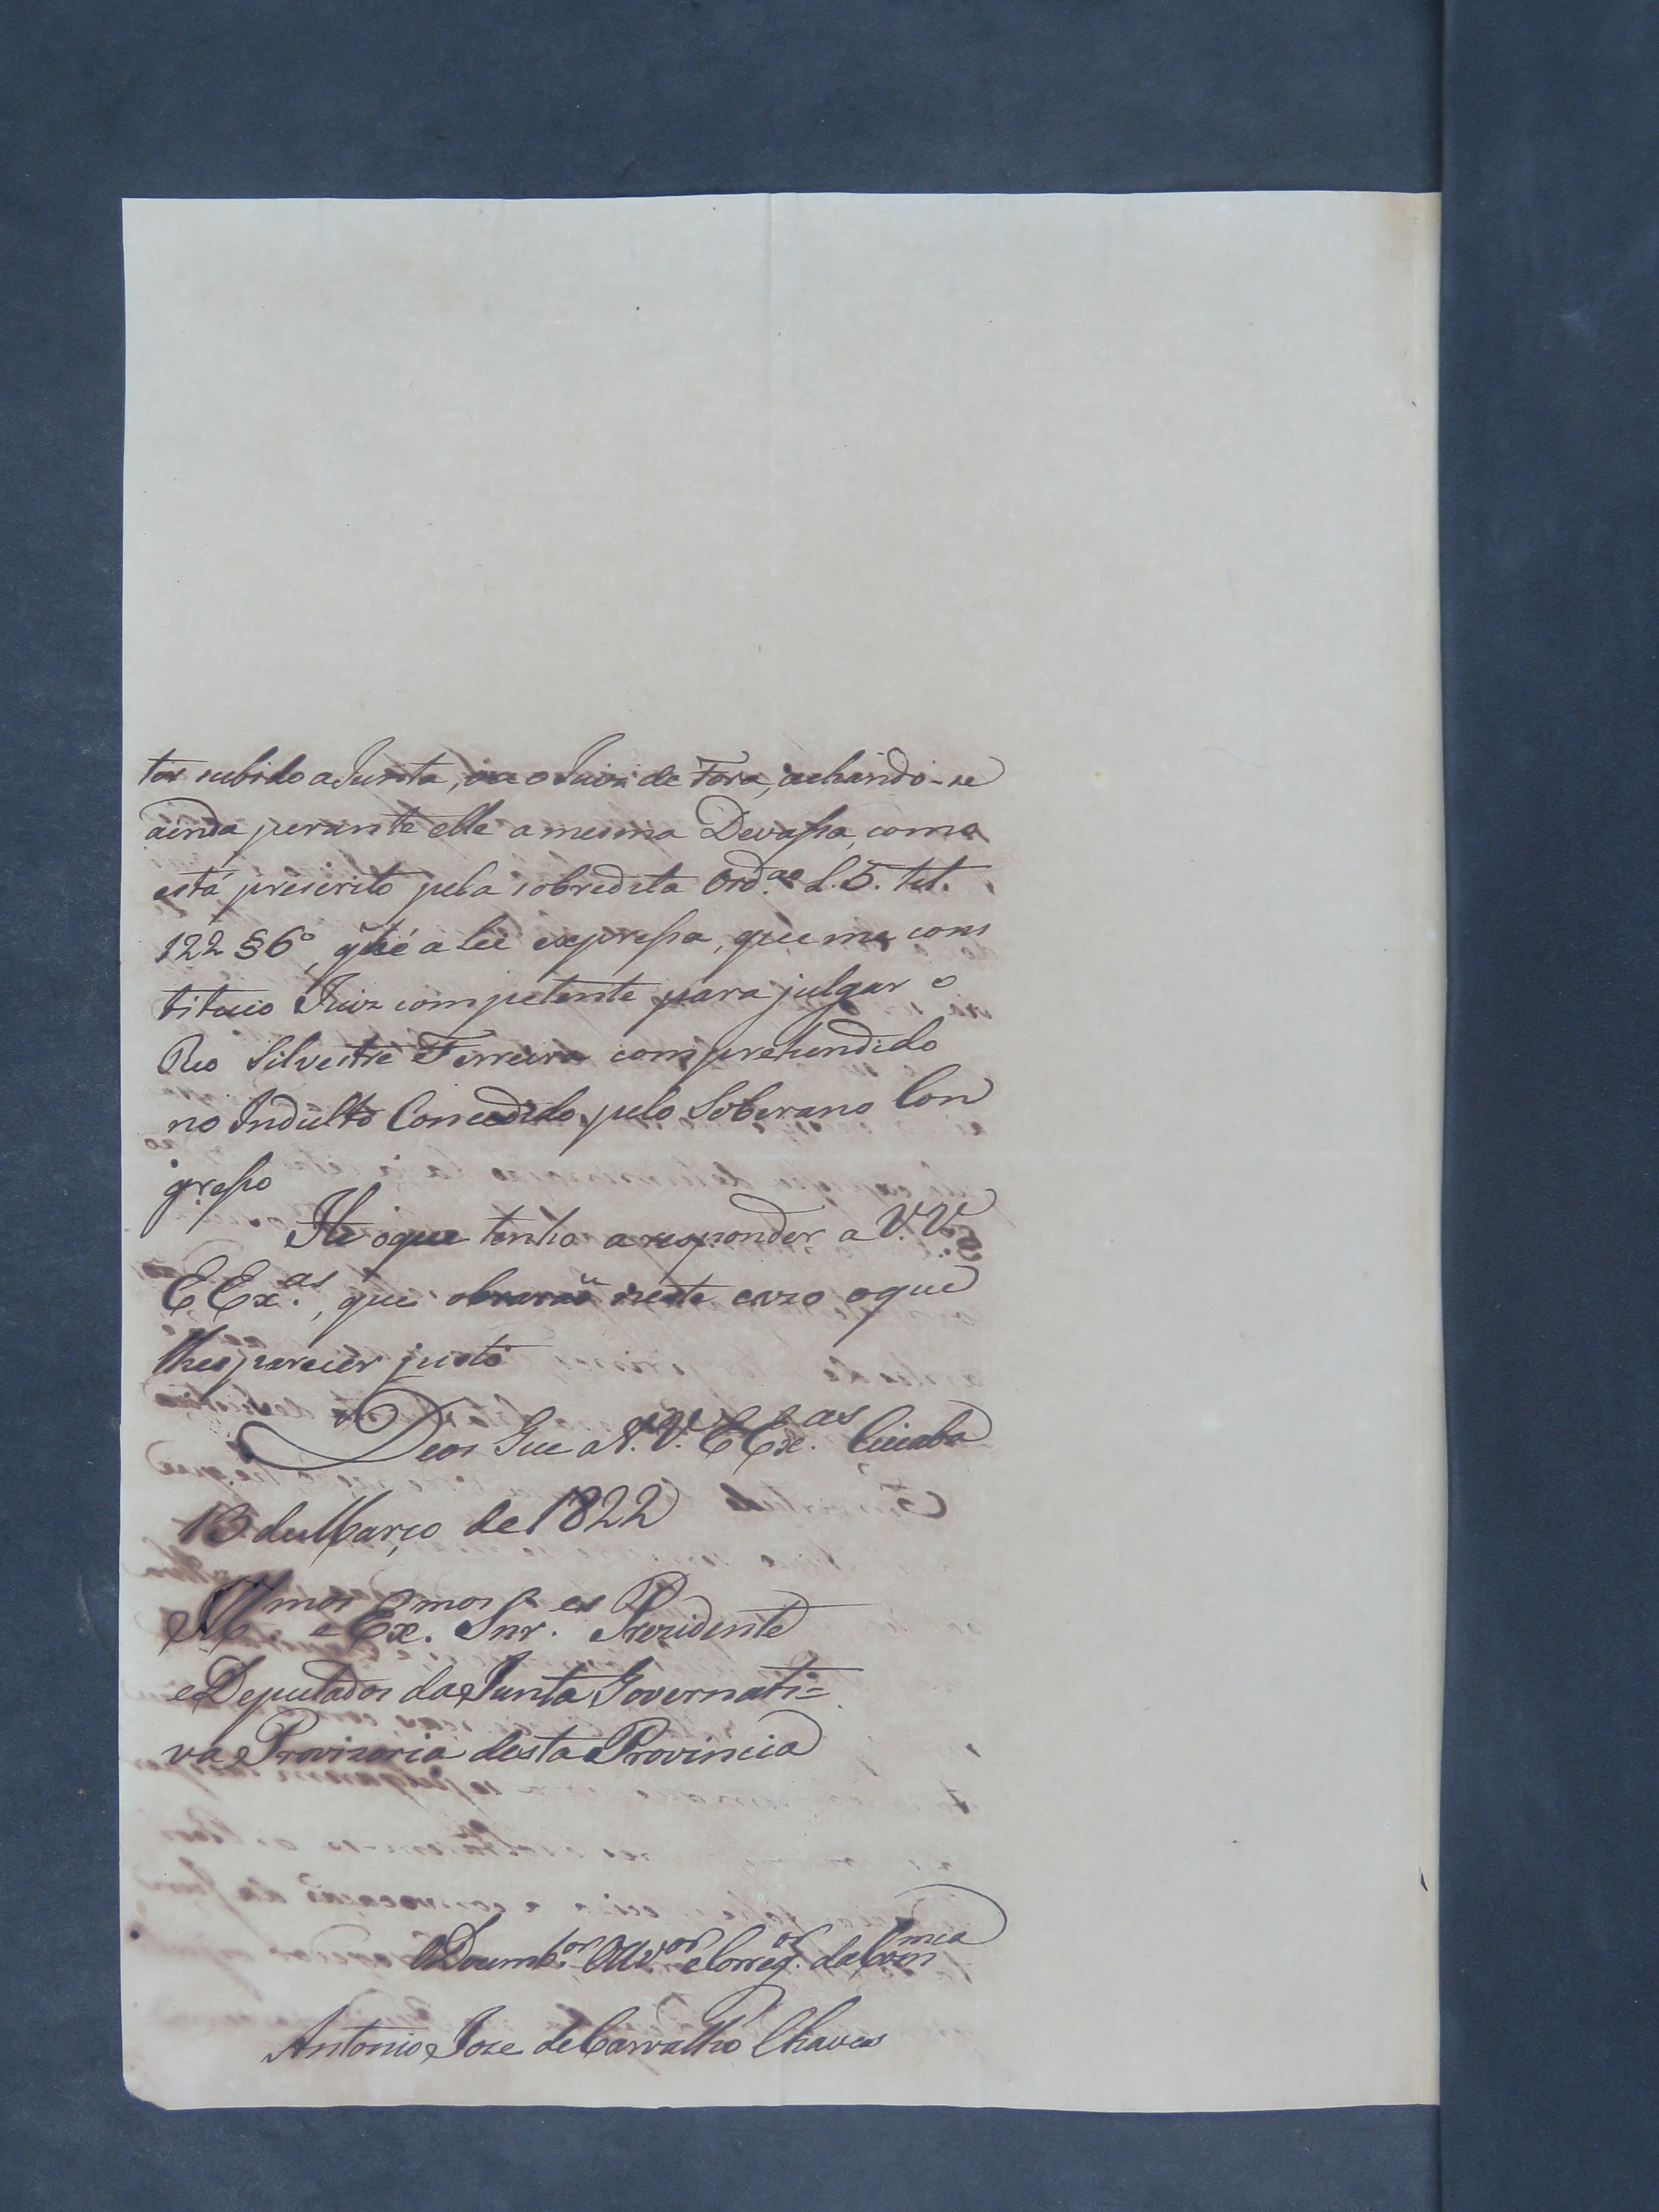 ter subido a Junta, ou o Juiz de Fora, achando-se
ainda perante elle a mesma Devassa, como
está prescrito pela sobredita Ord.ão L. 5. tit.
122 § 6º, q̃ hé a lei expressa, que me cons
tituio Juiz competente para julgar o
Reo Silvestre Ferreira comprehendido
no Indulto Concedido pelo Soberano Con
gresso
He o que tenho a responder a V.V.
EEx.as, que obraraõ neste cazo o que
lhes parecer justo
Deos Gue a V.V. EEx.as Cuiaba
13 de Março de 1822
Illmos e Exmos Snr.es Prezidente
e Deputados da Junta Governati=
va Provizoria desta Provincia
O Dezemb.or Ouv.or e Correg.or da Com.ca
Antonio Joze de Carvalho Chaves